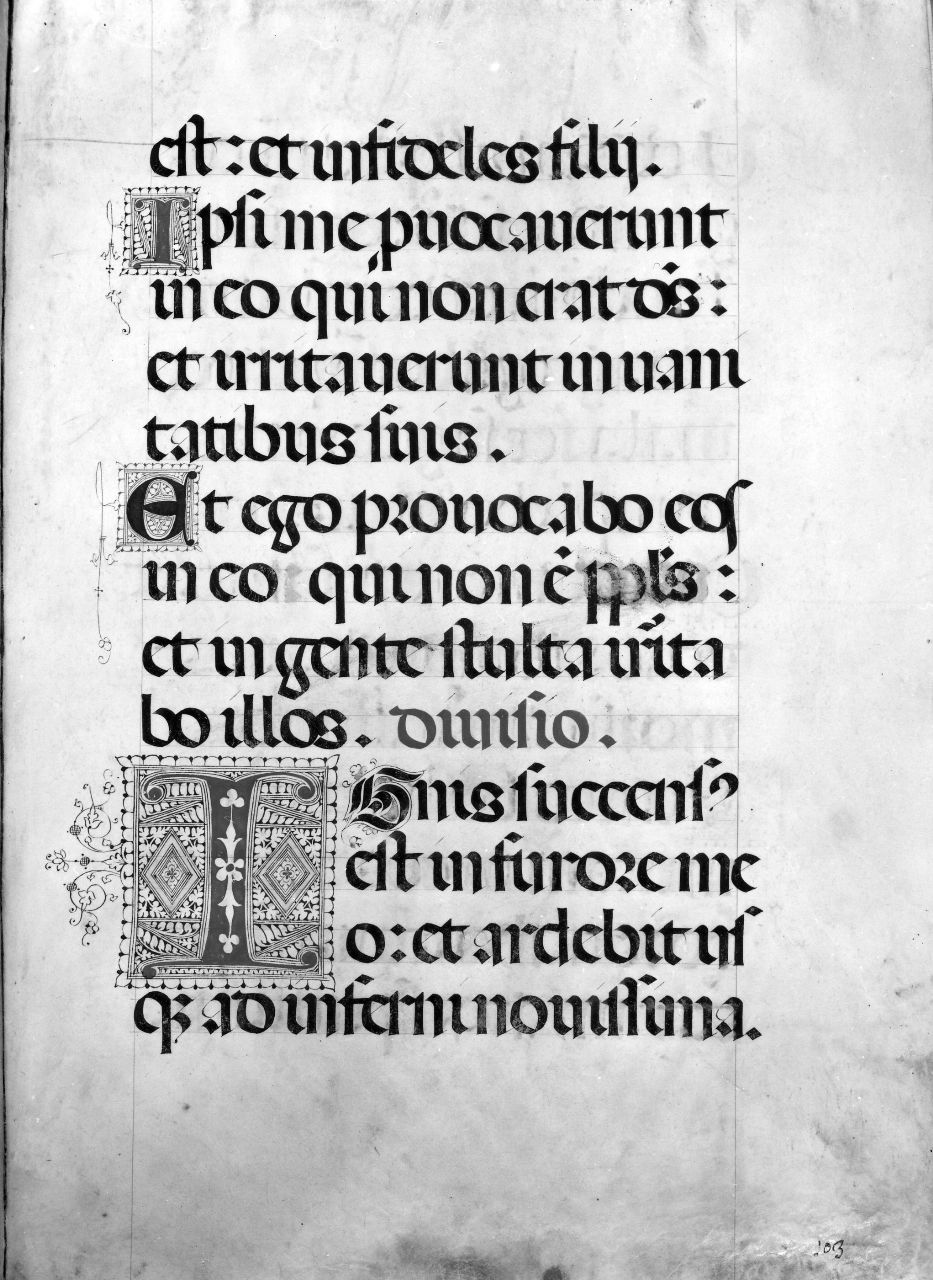 est: et infideles filij.
Ipsi me ꝓuocauerunt
in eo qui non erat dẽs:
et irritauerunt in uani
tatibus suis.
Et ego prouocabo eos
in eo qui non ẽ ppl̃s:
et in gente stulta irrita
bo illos. diuisio.
IGnis succensꝰ
est in furore me
o: et ardebit us
qꝫ ad inferni nouissima.
103